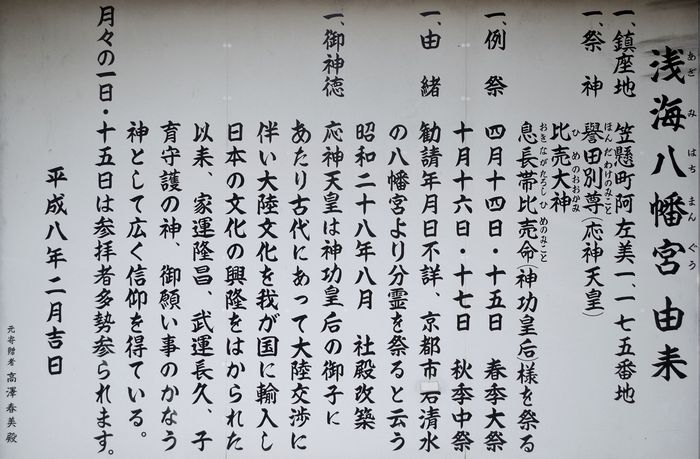 浅海八幡宮 由来
あざみはちまんぐう
一、鎮座地 笠懸町阿左美一、一七五番地
一、祭神 誉田別尊(応神天皇)
ほんだわけのみこと
比売大神
ひめのおおがみ
息長帯比売命(神功皇后)様を祭る
おきながたらしひめのみこと
一、例祭 四月十四日・十五日 春季大祭
十月十六日・十七日 秋季中祭
一、由緒 勧請年月日不詳、京都市石清水
の八幡宮より分霊を祭ると云う
昭和二十八年八月 社殿改築
一、御神徳 応神天皇は神功皇后の御子に
あたり古代にあって大陸交渉に
伴い大陸文化を我が国に輸入し
日本の文化の興隆をはかられた
以来、家運隆昌、武運長久、子
育守護の神、御願い事のかなう
神として広く信仰を得ている。
月々の一日・十五日は参拝者多勢参られます。
平成八年二月吉日
元寄贈者 高澤春美殿